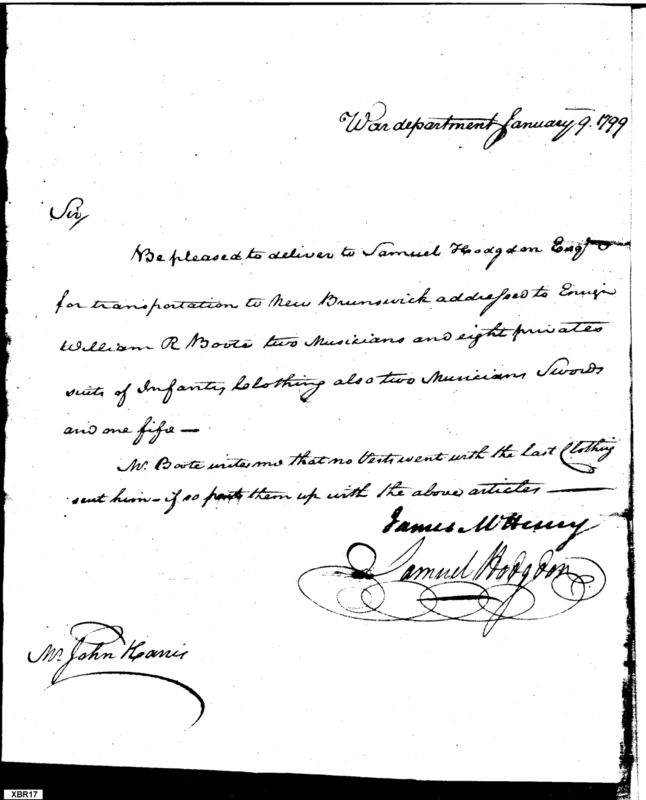 War department January 9. 1799
Sir,
Be pleased to deliver to Samuel Hodgdon Esqr
for transportation to New Brunswick addressed to Ensign
William R Boote two Musicians and eight privates
suits of Infantry Clothing also two Musicians Swords
and one fife —
Mr. Boote writes me that no Vests went with the last Clothing
sent him – if so pack them up with the above articles —
James McHenry
Samuel Hodgdon
Mr. John Harris
XBR17